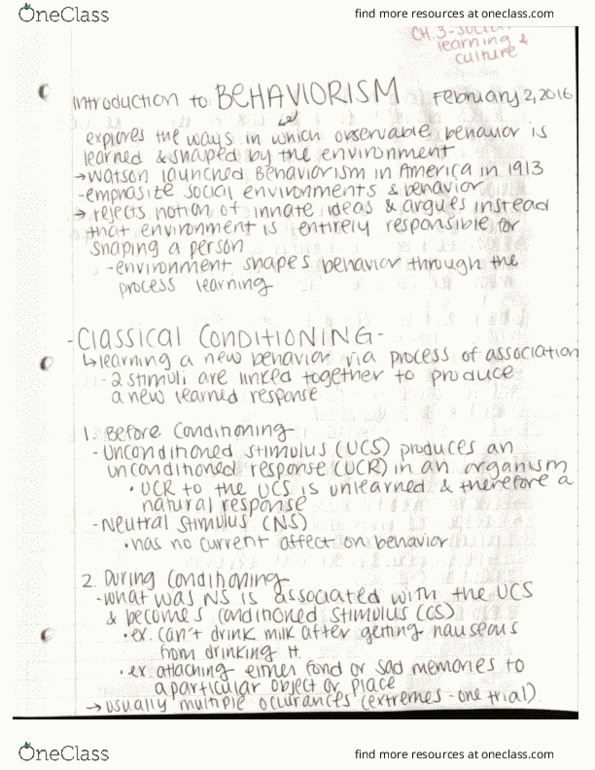 OneClass
find more resources at oneclass.com
CH. 3-Social
learning &
culture
Introduction to: BEHAVIORISM February 2, 2016
explores the ways in which observable behavior is
learned & shaped by the environment
→Watson launched Behaviorism in America in 1913
-emphasize social environments & behavior
→ rejects notion of innate ideas & argues instead
that environment is entirely responsible for
shaping a person
-environment shapes behavior through the
process learning
-CLASSICAL CONDITIONING-
↳learning a new behavior via process of association
- 2 stimuli are linked together to produce
a new learned response
1. Before Conditioning
- Unconditioned stimulus (UCS) produces an
unconditioned response (UCR) in an organism
• UCR to the UCS is unlearned & therefore a
natural response
-Neutral Stimulus (NS)
•has no current affect on behavior
2. During Conditioning
-what was NS is associated with the UCS
& becomes conditioned stimulus (CS)
• ex. can't drink milk after getting nauseous
from drinking it.
• ex. attaching either fond or sad memories to
a particular object or place
→ usually multiple occurances (extremes - one trial)
OneClass
find more resources at oneclass.com